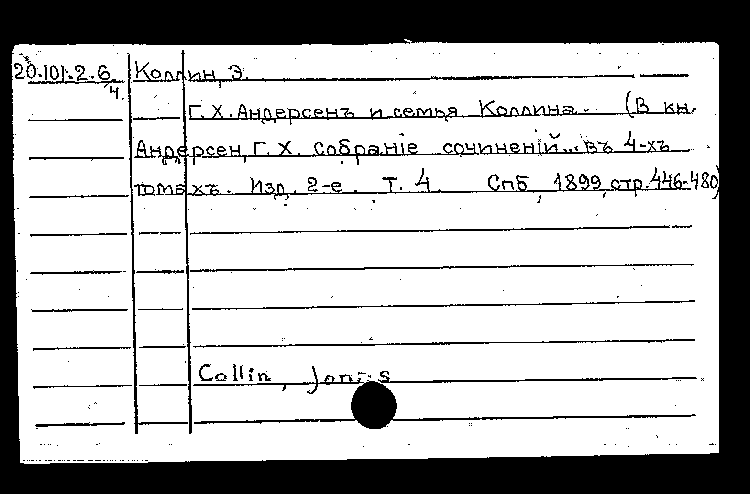 20.101.2.6. Коллин, Э.
4.
Г. Х. Андерсенъ и семья Коллина. (В кн.
Андерсен, Г. Х. Собранiе сочиненiй... въ 4-хъ
томахъ. Изд. 2-е. Т. 4. Спб, 1899, стр. 446-480)
Collin, Jonas